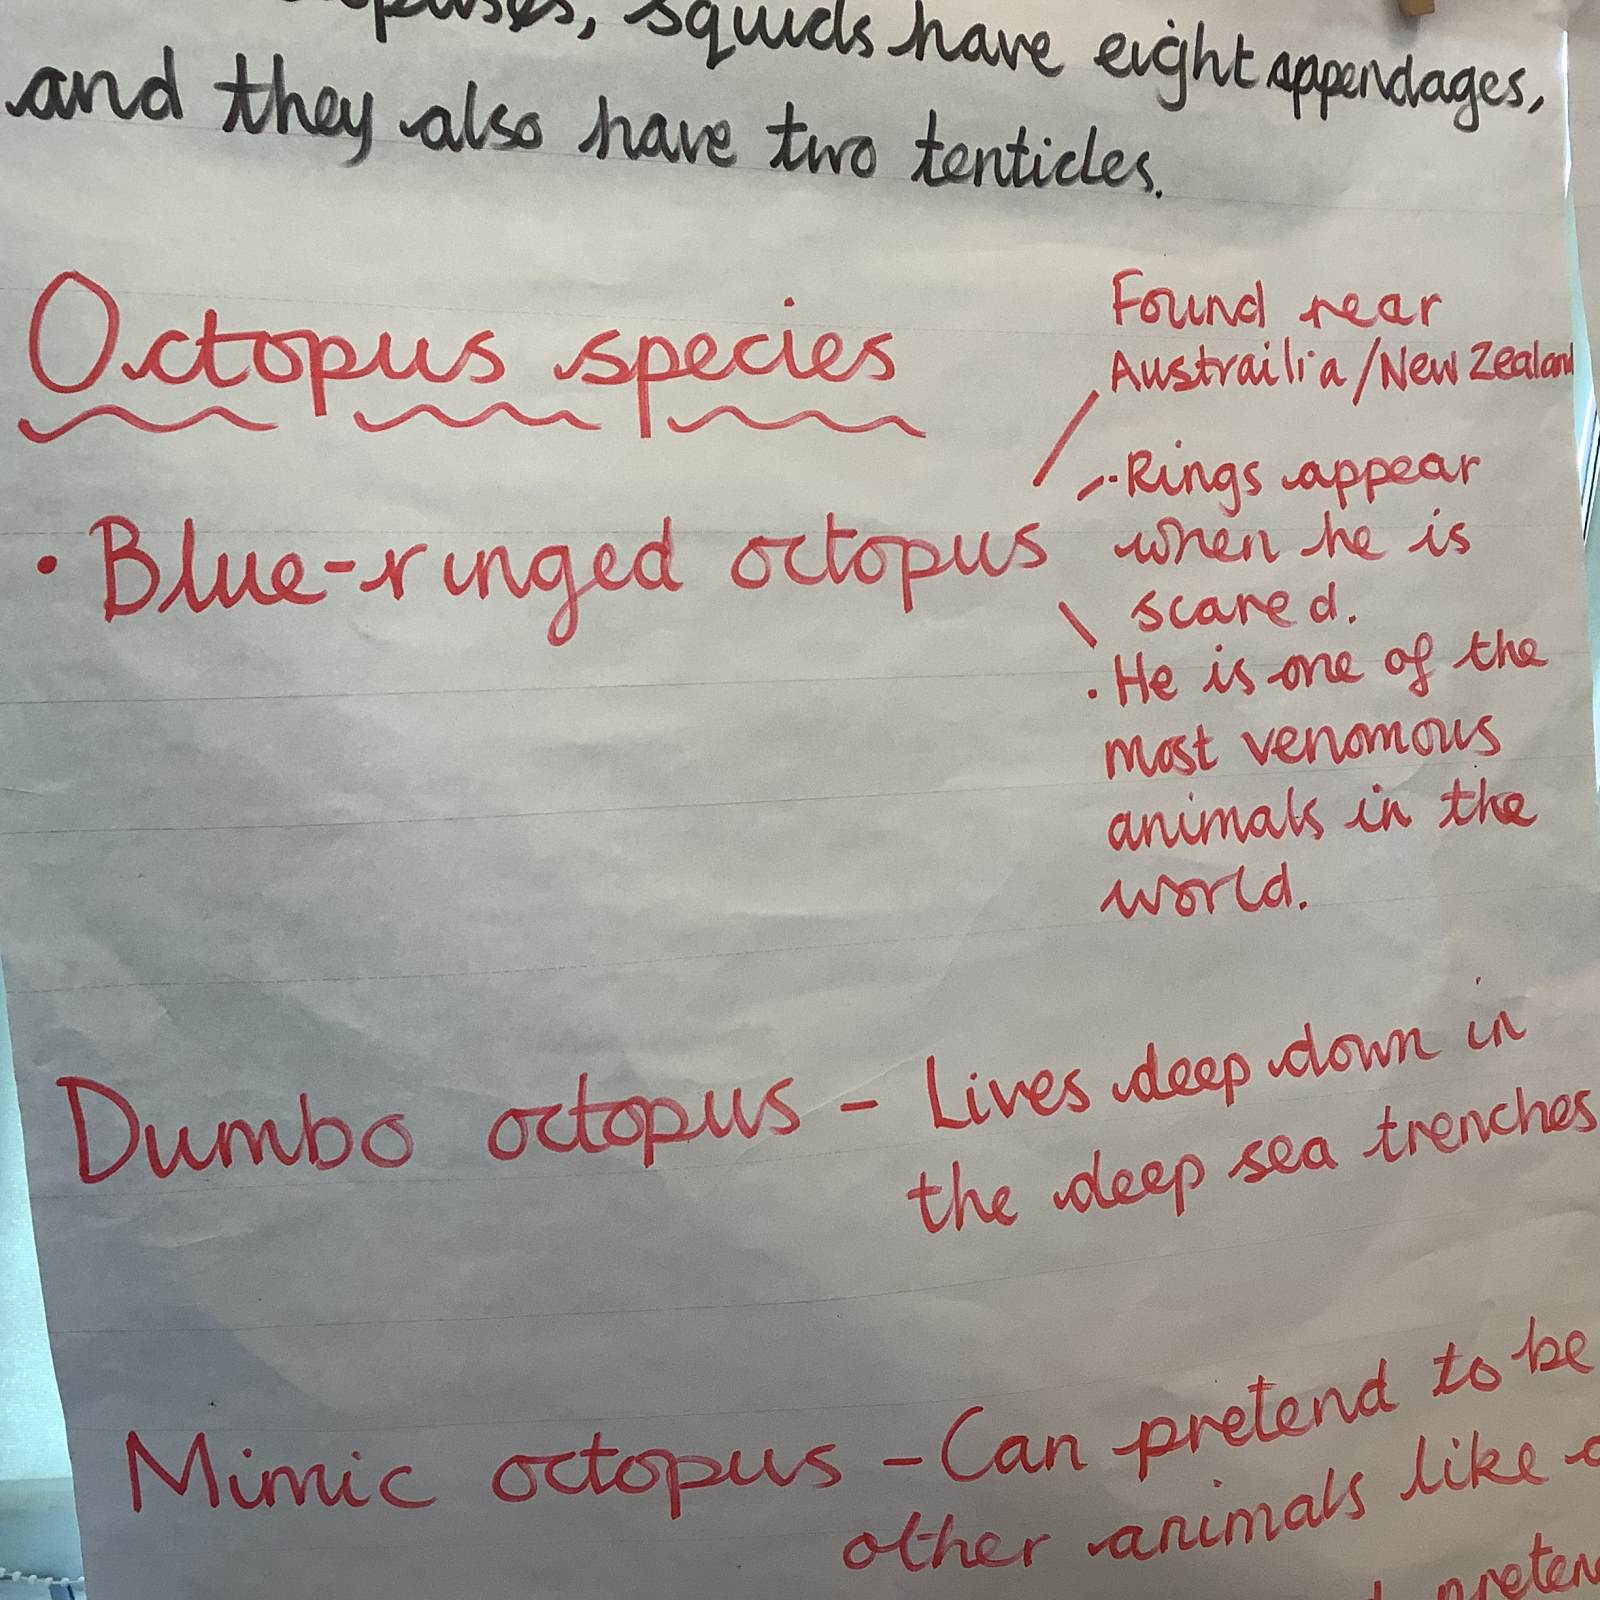 squids have eight appendages,
and they also have two tenticles.
Octopus species
• Blue-ringed octopus
Found near
Austrailia/New Zealand
• Rings appear
when he is
scared.
• He is one of the
most venomous
animals in the
world.
Dumbo octopus - Lives deep down in
the deep sea trenches
Mimic octopus - Can pretend to be
other animals like